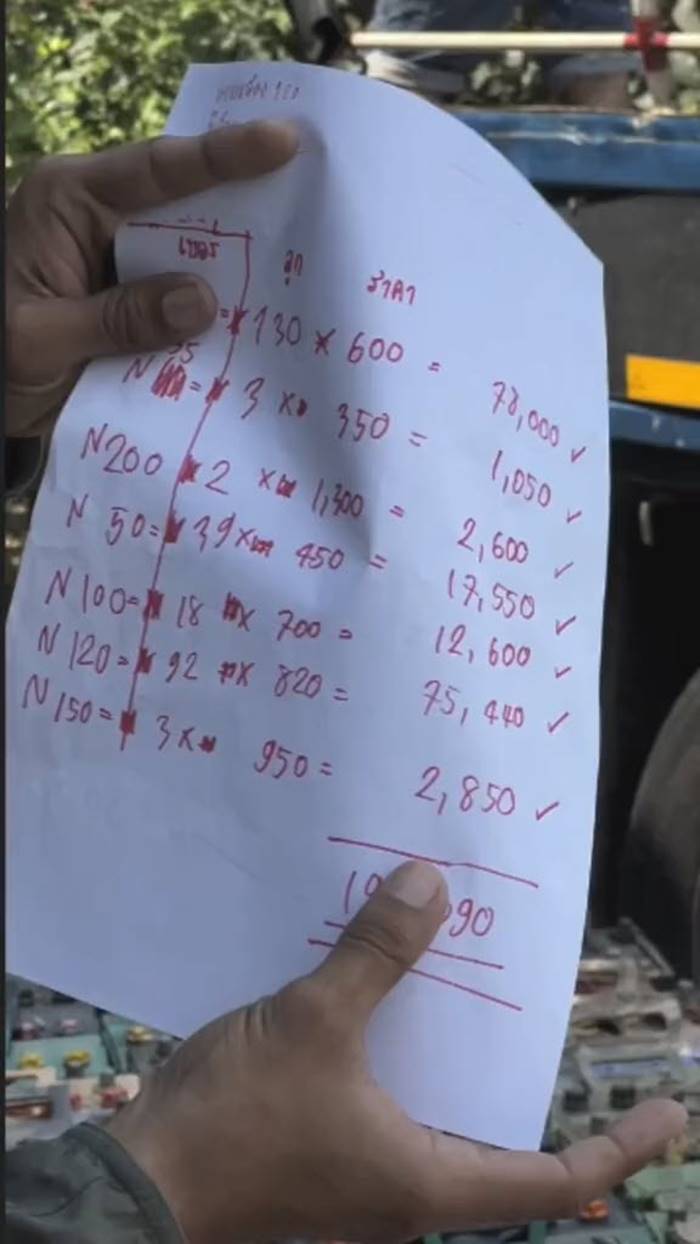 เบอร์ ลูก ราคา
= 130 × 600 = 78,000 ✓
N 35 = 3 × 350 = 1,050 ✓
N200 2 × 1,300 = 2,600 ✓
N 50 = 39 × 450 = 17,550 ✓
N100 = 18 × 700 = 12,600 ✓
N120 = 92 × 820 = 75,440 ✓
N150 = 3 × 950 = 2,850 ✓